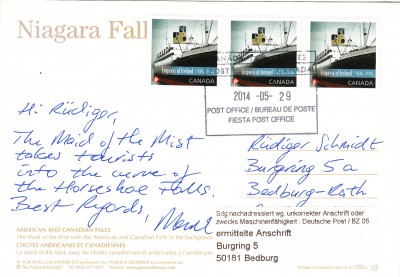 Niagara Fall
Empress of Ireland 1914-2014
CANADA
Empress of Ireland
CANADA
Empress of Ireland
CANADA
CANADA
POST
2014 -05- 29
POST OFFICE / BUREAU DE POSTE
FIESTA POST OFFICE
Hi Rüdiger,
The Maid of the Mist
takes tourists
into the curve of
the Horseshoe Falls.
Best Regards,
Rüdiger Schmidt
Burgring 5a
Bedburg-Kath
Sdg nachadressiert wg. unkorrekter Anschrift oder
zwecks Maschinenfähigkeit : Deutsche Post / BZ 05
ermittelte Anschrift
Burgring 5
50181 Bedburg
AMERICAN AND CANADIAN FALLS
The Maid of the Mist with the American and Canadian Falls in the background
CHUTES AMÉRICAINES ET CANADIENNES
La Maid of the Mist, avec les chutes canadiennes et américaines à l'arrière-pla